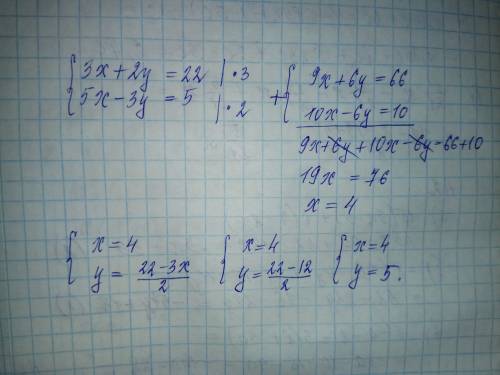 { 3x+2y = 22 | ·3
{ 5x-3y = 5 | ·2
+ { 9x+6y = 66
{ 10x-6y = 10
9x+6y+10x-6y=66+10
19x = 76
x = 4
{ x=4
{ y = (22-3x)/2
{ x=4
{ y = (22-12)/2
{ x=4
{ y=5.